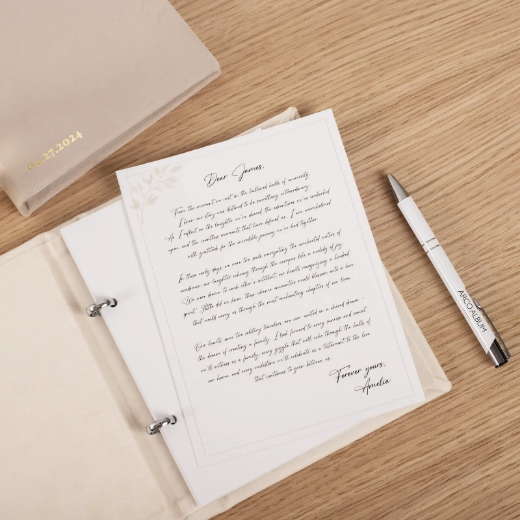 .27.2024
Dear James,
From the moment we met in the hallowed halls of university,
I knew our story was destined to be something extraordinary.
As I reflect on the laughter we've shared, the adventures we've embarked
upon, and the countless moments that have defined us, I am overwhelmed
with gratitude for the incredible journey we've had together.
In those early days, we were two souls navigating the uncharted waters of
our laughter echoing through the campus like a melody of joy.
We were drawn to each other's our hearts recognizing a kindred
spirit. Little did we know, those chance encounters would blossom into a love
that would carry us through the most enchanting chapters of our lives.
Our hearts, once two solitary wanderers, are now united in a shared dream -
the dream of creating a family. I look forward to every sunrise and sunset
we'll witness as a family, every giggle that will echo through the halls of
our home, and every milestone we'll celebrate as a testament to the love
that continues to grow between us.
Forever yours,
Amelia
ARCOALBUM